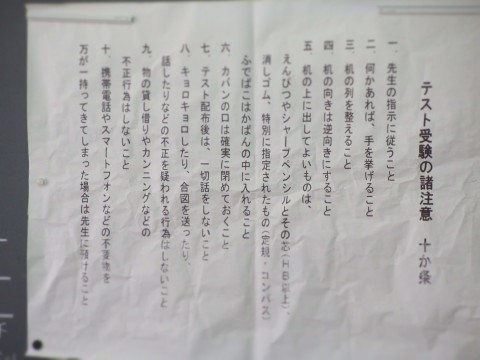 テスト受験の諸注意　十か条
一、先生の指示に従うこと
二、何かあれば、手を挙げること
三、机の列を整えること
四、机の向きは逆向きにすること
五、机の上に出してよいものは、
えんぴつやシャープペンシルとその芯（HB以上）、
消しゴム、特別に指定されたもの（定規・コンパス）
ふでばこはかばんの中に入れること
六、カバンの口は確実に閉めておくこと
七、テスト配布後は、一切話をしないこと
八、キョロキョロしたり、合図を送ったり、
話したりなどの不正を疑われる行為はしないこと
九、物の貸し借りやカンニングなどの
不正行為はしないこと
十、携帯電話やスマートフォンなどの不要物を
万が一持ってきてしまった場合は先生に預けること